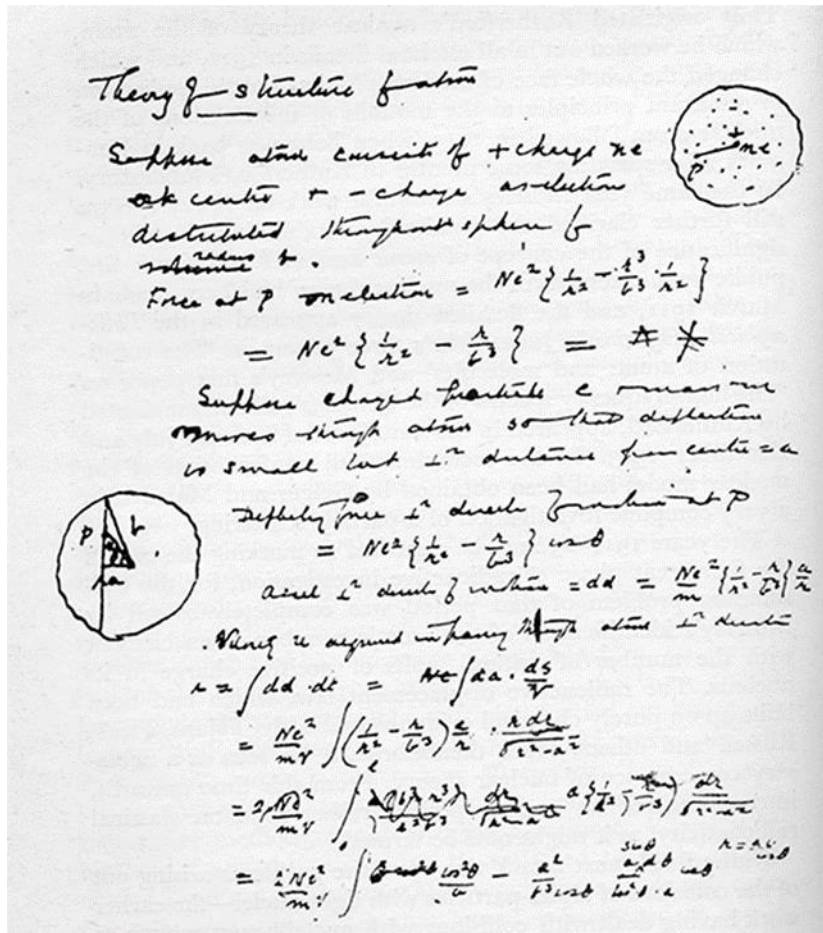 Theory of structure of atom
+
ne
P
Suppose atom consists of + charge ne
at centre + - charge as electron
distributed throughout sphere of
radius b.
Force at P on electron = Ne² { 1/r² - r³/b³ · 1/r² }
= Ne² { 1/r² - r/b³ } =
Suppose charged particle e mass m
moves through atom so that deflection
is small but ⊥ʳ distance from centre = a
P
b
a
Deflecting force ⊥ʳ direction of at P
= Ne² { 1/r² - r/b³ } cos θ
Accel ⊥ʳ direction of motion = dd = Ne²/m { 1/r² - r/b³ } a/r
Velocity u acquired in passing through atom ⊥ʳ direction
u = ∫ dd · dt = ∫ · ds/V
= Ne²/mV ∫ ( 1/r² - r/b³ ) a/r · r dr/√(r² - a²)
= 2 Ne²/mV ∫ a { 1/r² - } dr/√(r² - a²)
= 2 Ne²/mV ∫ cos²θ - a²/b³cosθ